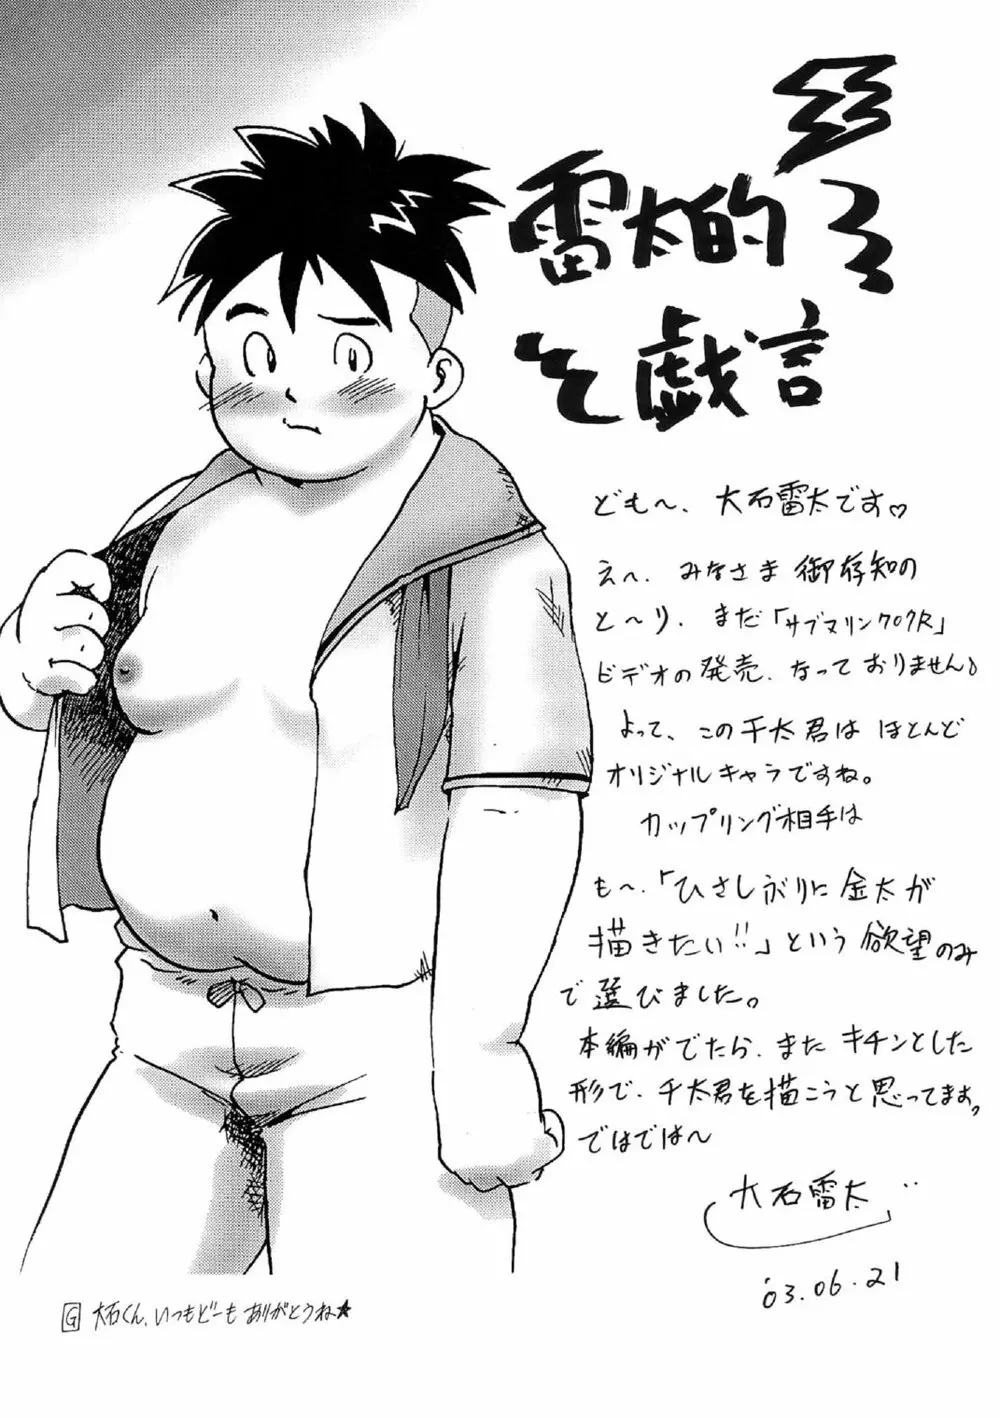 雷太的
戯言
ども〜、大石雷太です♡
え〜、みなさま御存知の
と〜り、まだ「サブマリン707R」
ビデオの発売、なっておりません♪
よって、この千太君はほとんど
オリジナルキャラですね。
カップリング相手は
も〜、「ひさしぶりに金太が
描きたい!!」という欲望のみ
で選びました。
本編がでたら、また キチンとした
形で、千太君を描こうと思ってます。
ではでは〜
大石雷太
'03.06.21
G 大石くん、いつもどーもありがとうね★